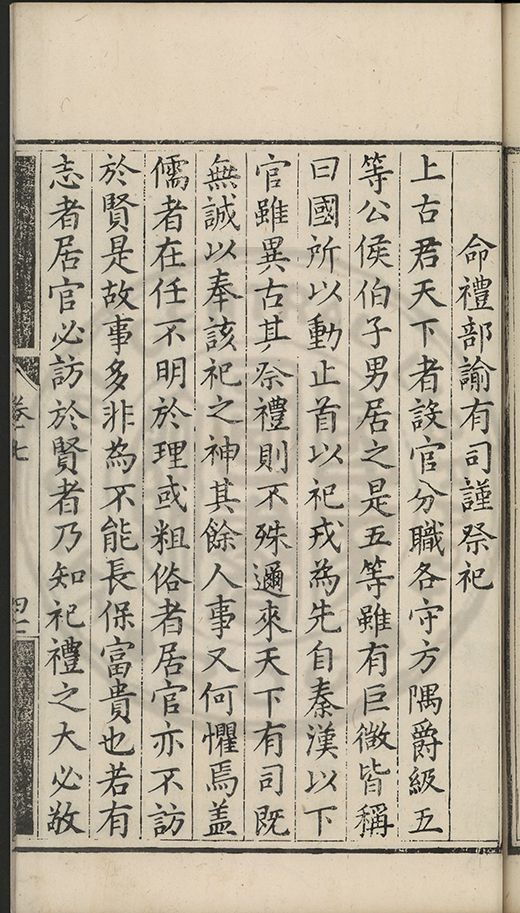 命禮部諭有司謹祭祀
上古君天下者設官分職各守方隅爵級五
等公侯伯子男居之是五等雖有巨微皆稱
曰國所以動止首以祀戎為先自秦漢以下
官雖異古其祭禮則不殊邇來天下有司既
無誠以奉該祀之神其餘人事又何懼焉盖
儒者在任不明於理或粗俗者居官亦不訪
於賢是故事多非為不能長保富貴也若有
志者居官必訪於賢者乃知祀禮之大必敬
卷七